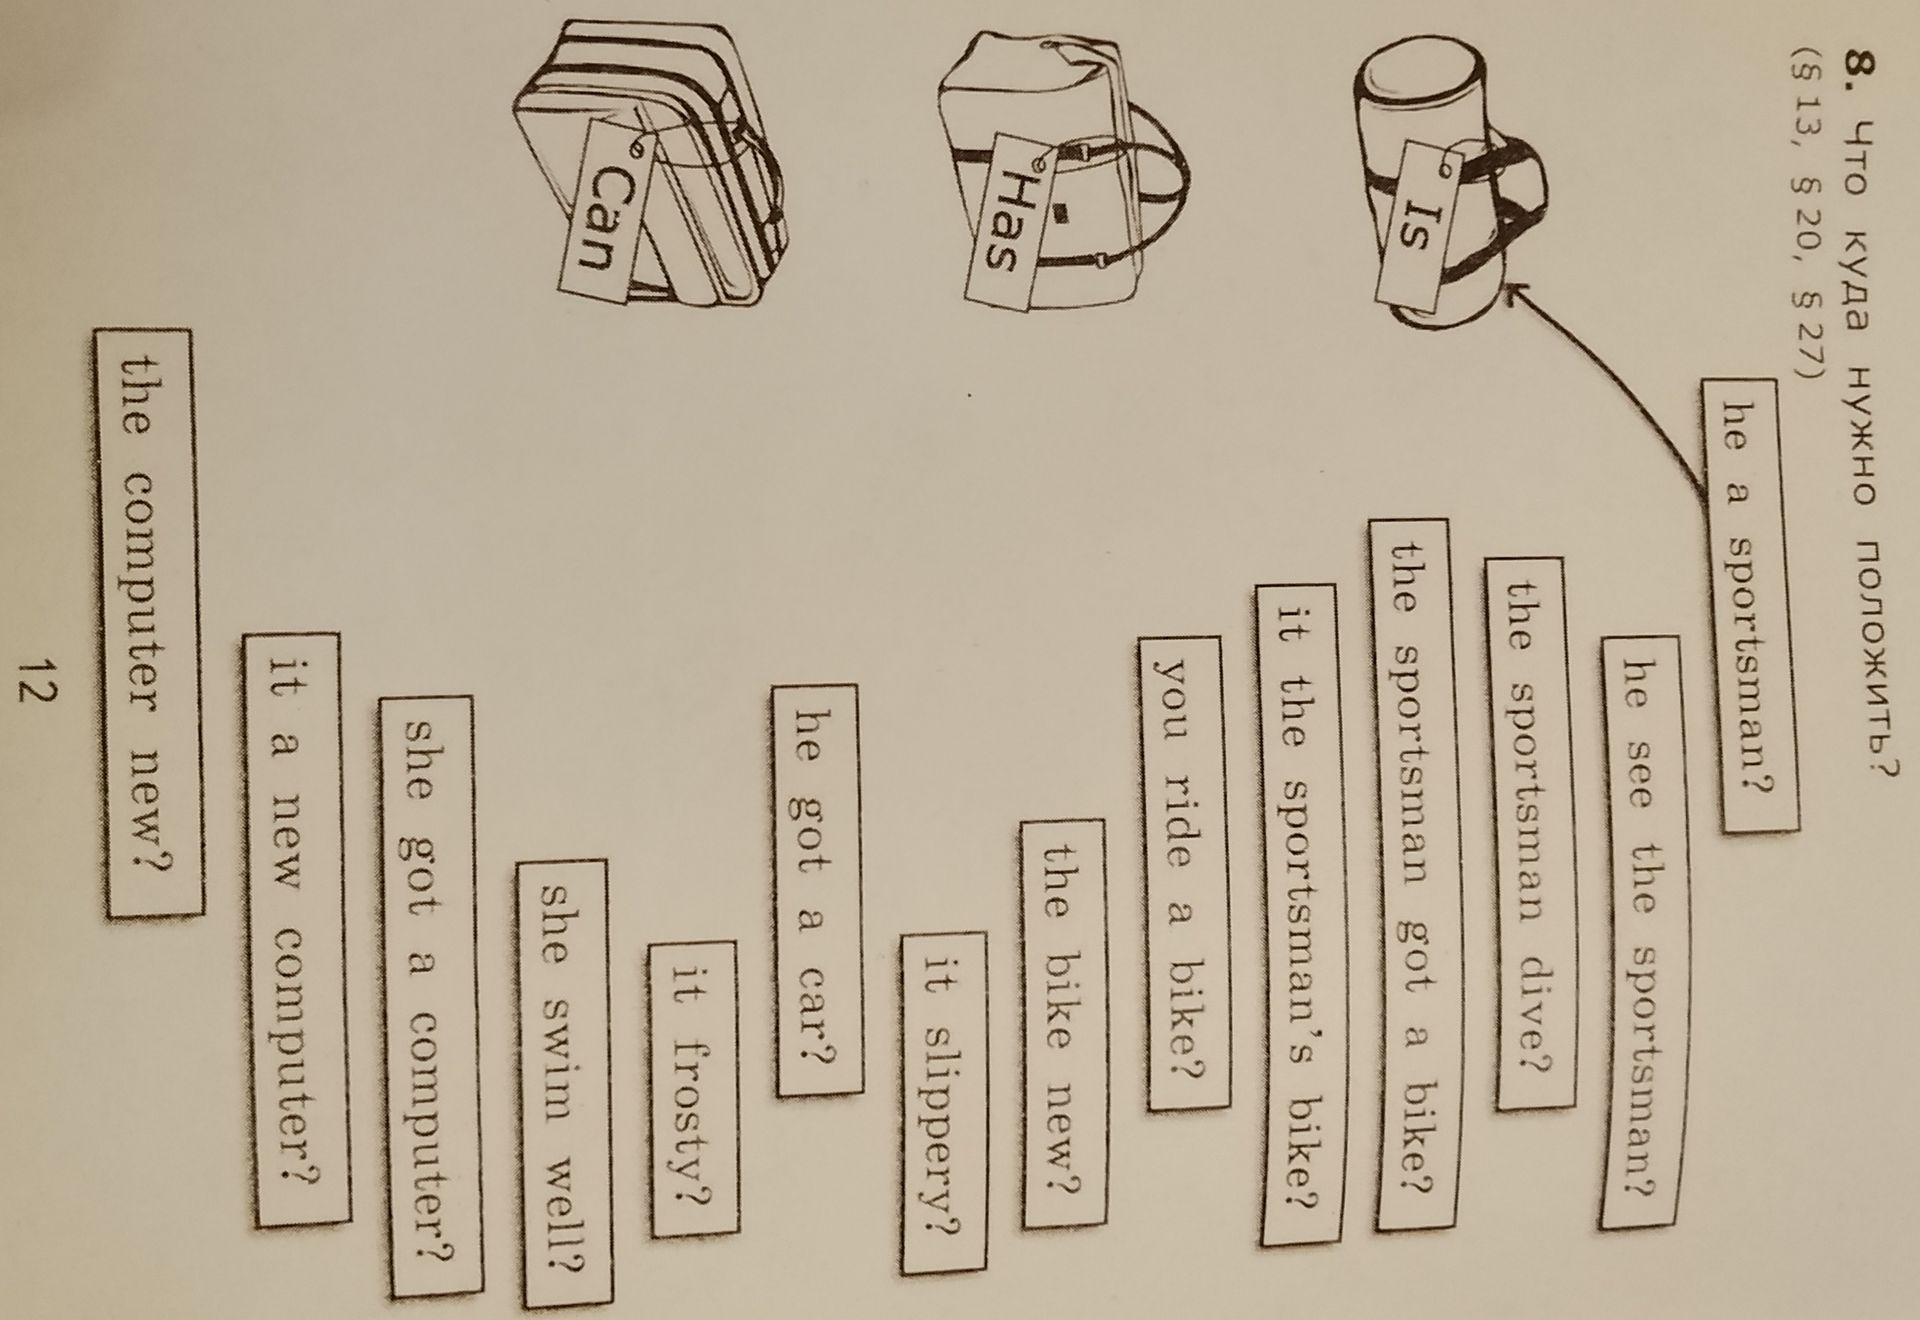 8. Что куда нужно положить?
(§ 13, § 20, § 27)
he a sportsman?
he see the sportsman?
the sportsman dive?
Is
the sportsman got a bike?
it the sportsman's bike?
you ride a bike?
Has
the bike new?
it slippery?
he got a car?
it frosty?
Can
she swim well?
she got a computer?
it a new computer?
the computer new?
12